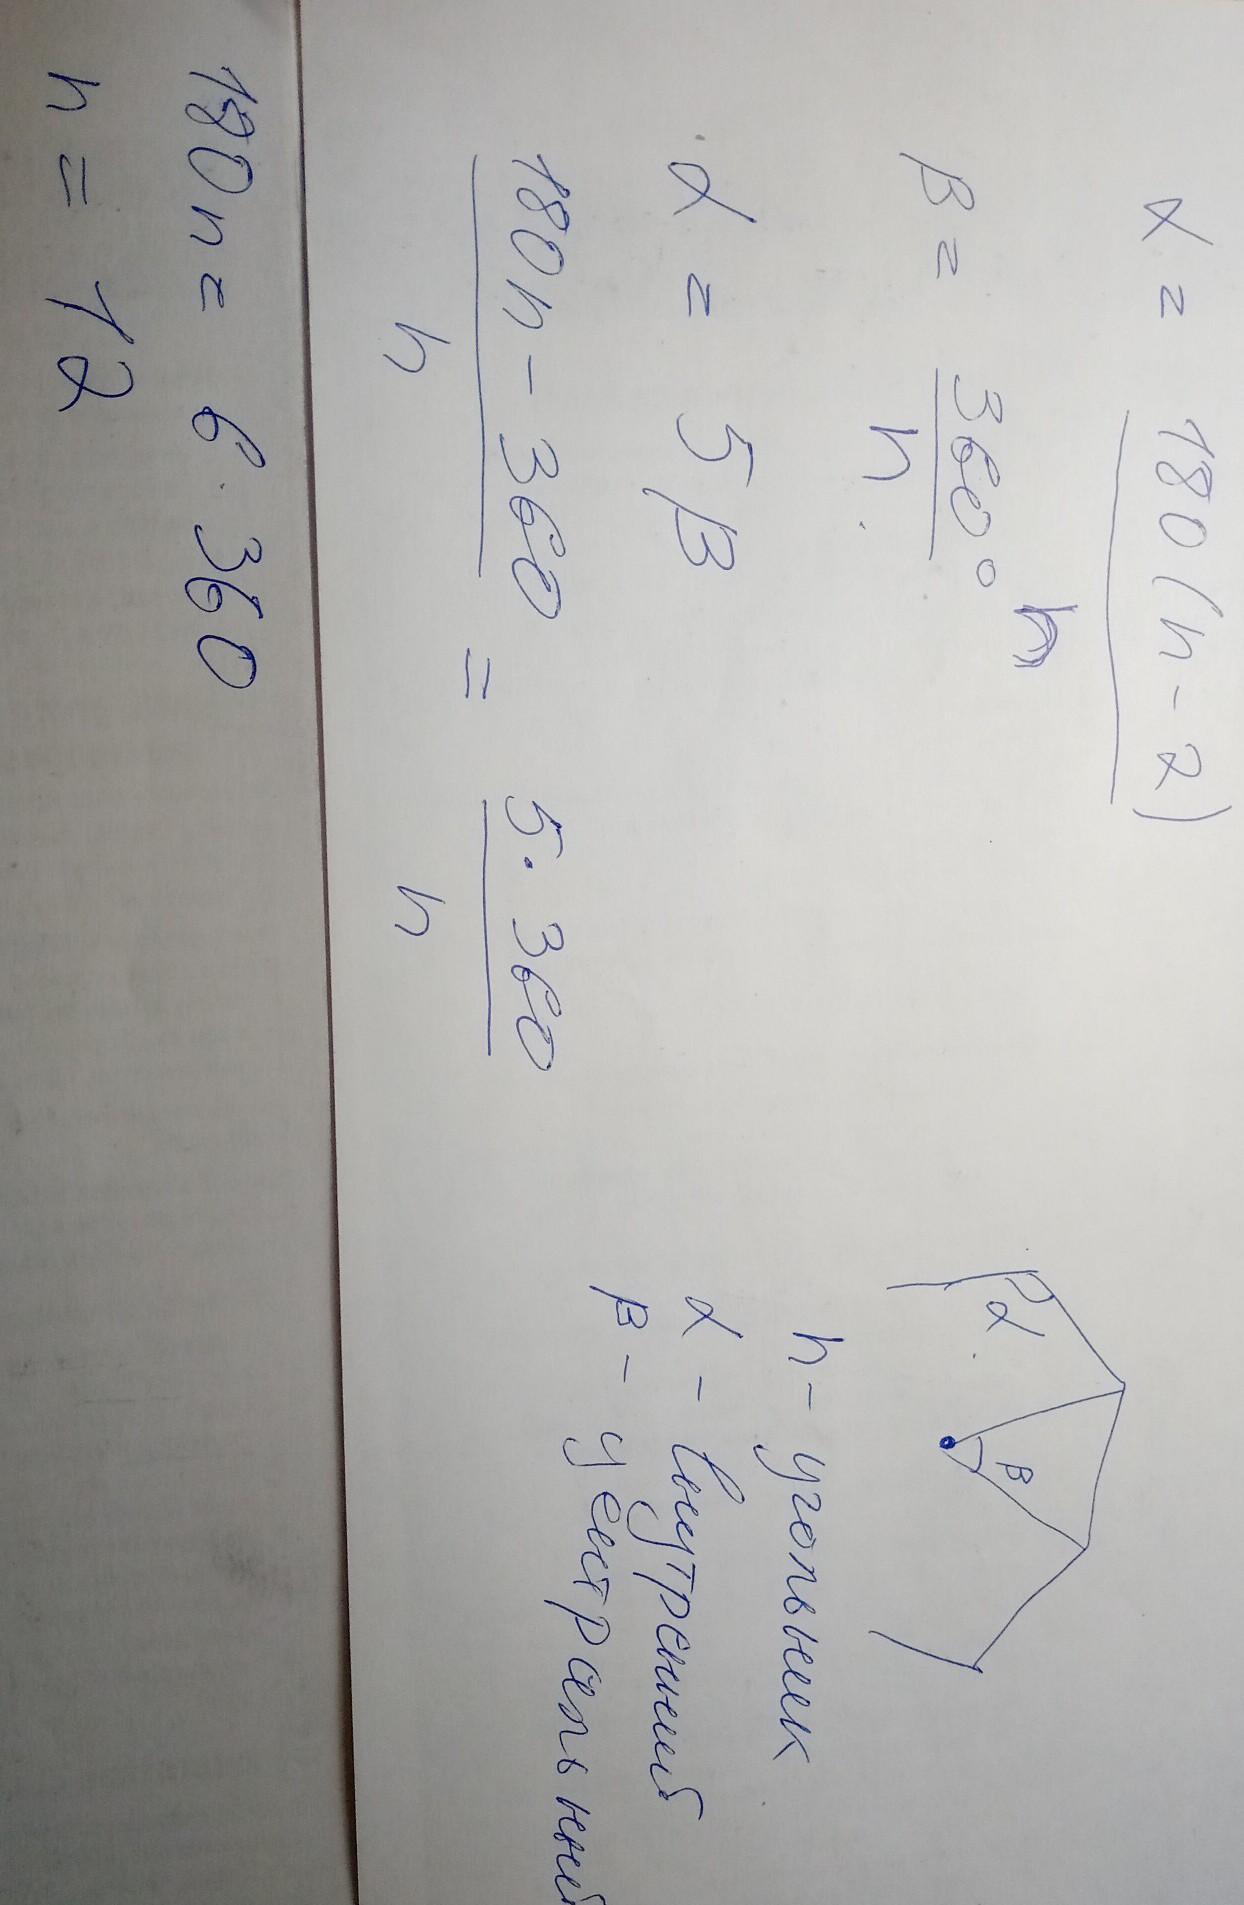 α = 180(n-2)
n
β = 360°
n
α = 5β
180n - 360 = 5·360
n n
180n = 6·360
n = 12
α
β
n - угольник
α - внутренний
β - центральный